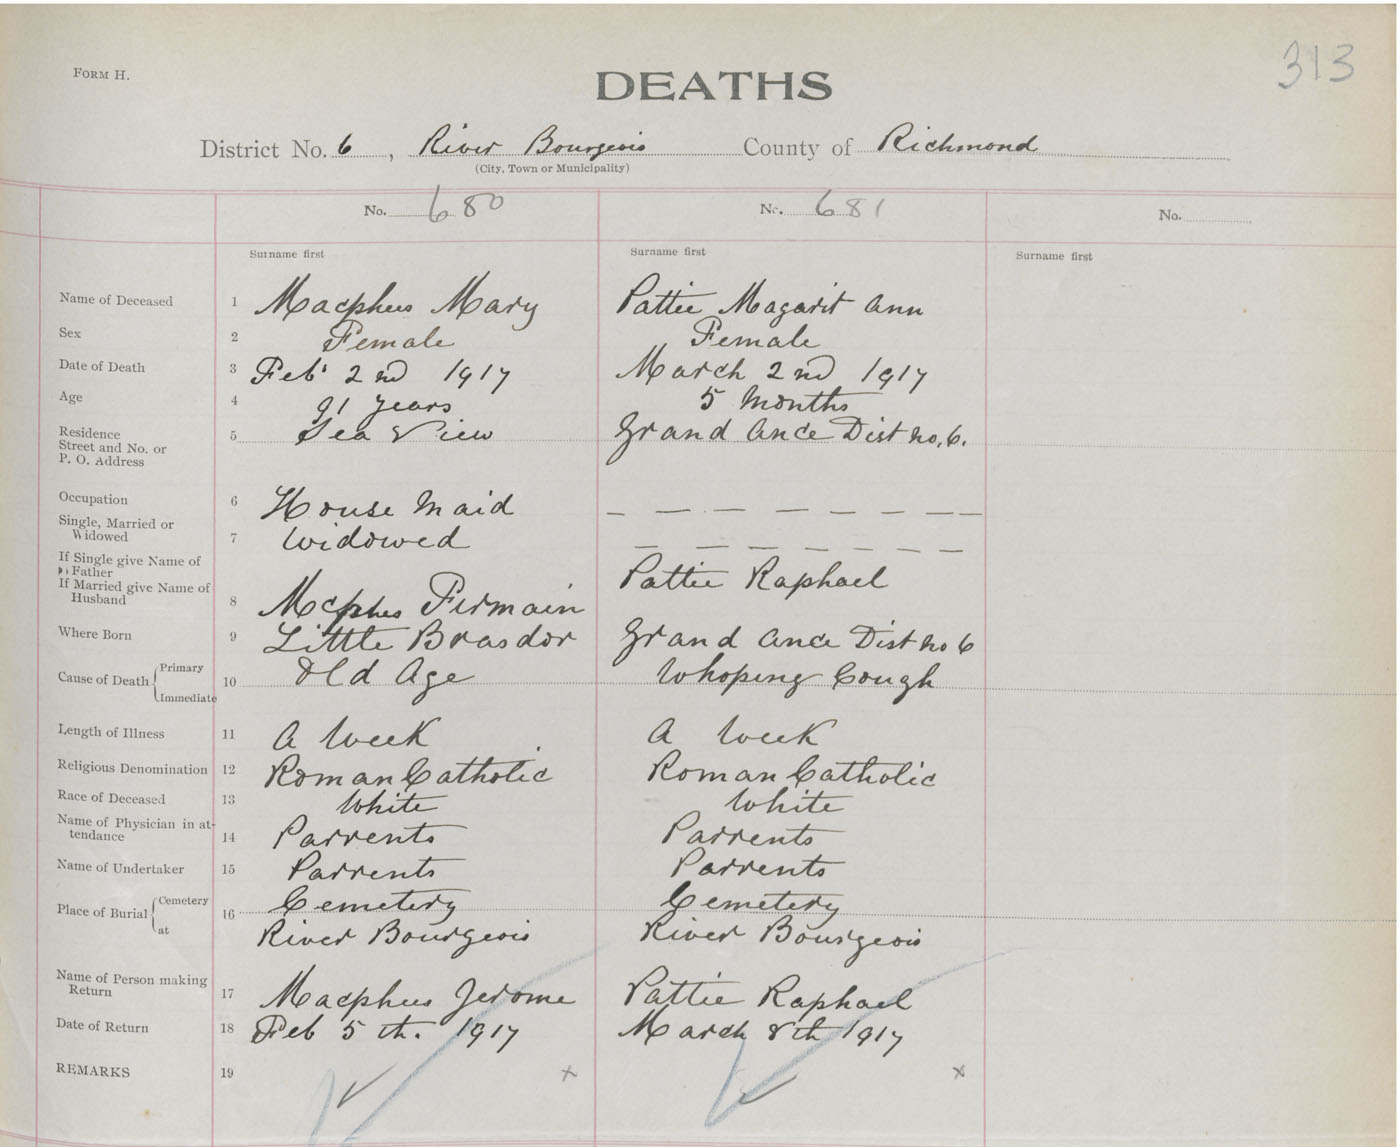 313
FORM H.
DEATHS
District No. 6, River Bourgeois County of Richmond
(City, Town or Municipality)
No. 680 No. 681 No.
Surname first Surname first Surname first
Name of Deceased 1 Macphees Mary Pattie Magarit Ann
Sex 2 Female Female
Date of Death 3 Feb' 2nd 1917 March 2nd 1917
Age 4 91 years 5 months
Residence 5 Sea View Grand Ance Dist no. 6.
Street and No. or
P. O. Address
Occupation 6 House Maid — — — — — — — —
Single, Married or
Widowed 7 Widowed — — — — — —
If Single give Name of
Father Pattie Raphael
If Married give Name of
Husband 8 Mcphes Firmain
Where Born 9 Little Brasdor Grand Ance Dist no 6
Cause of Death { Primary
Immediate 10 Old Age Whoping Cough
Length of Illness 11 A Week A Week
Religious Denomination 12 Roman Catholic Roman Catholic
Race of Deceased 13 White White
Name of Physician in at-
tendance 14 Parrents Parrents
Name of Undertaker 15 Parrents Parrents
Place of Burial { Cemetery 16 Cemetery Cemetery
at River Bourgeois River Bourgeois
Name of Person making
Return 17 Macphees Jerome Pattie Raphael
Date of Return 18 Feb 5th. 1917 March 8th 1917
REMARKS 19 x x